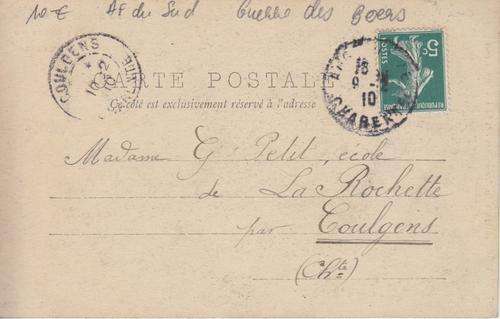 10 € Af du Sud Guerre des Boers
COULGENS
10 -2
10
CHARENTE
5c
POSTES
16
9 -2
10
CHARENTE
CARTE POSTALE
Ce côté est exclusivement réservé à l'adresse
Madame G Petit, école
de La Rochette
par Coulgens
(Chte)